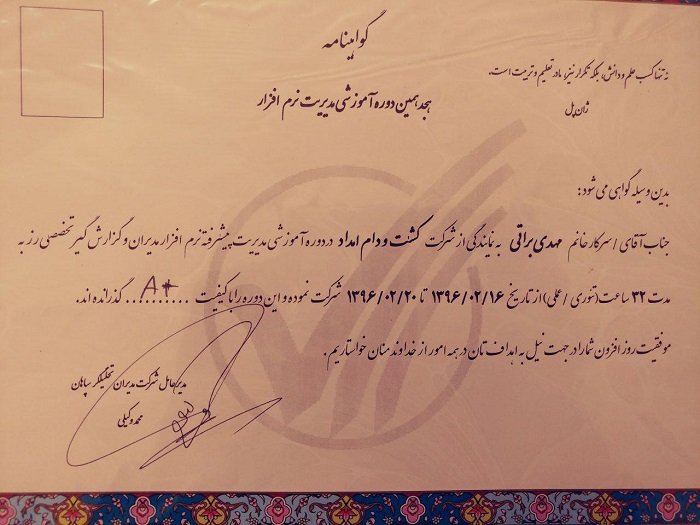 گواهینامه
نه تنها کسب علم و دانش، بلکه تکرار نیز، مادر تعلیم و تربیت است.
ژان پل
هجدهمین دوره آموزشی مدیریت نرم افزار
بدین وسیله گواهی می شود:
جناب آقای / سرکار خانم مهدی براقی به نمایندگی از شرکت کشت و دام امداد در دوره آموزشی مدیریت پیشرفته نرم افزار مدیران و گزارش گیر تخصصی رز به
مدت ۳۲ ساعت (تئوری / عملی) از تاریخ ۱۳۹۶/۰۲/۱۶ تا ۱۳۹۶/۰۲/۲۰ شرکت نموده و این دوره را با کیفیت ...A+... گذرانده اند.
موفقیت روز افزون شما را در جهت نیل به اهداف تان در همه امور از خداوند منان خواستاریم.
مدیرعامل شرکت مدیران تحلیلگر سپاهان
محمد وکیلی